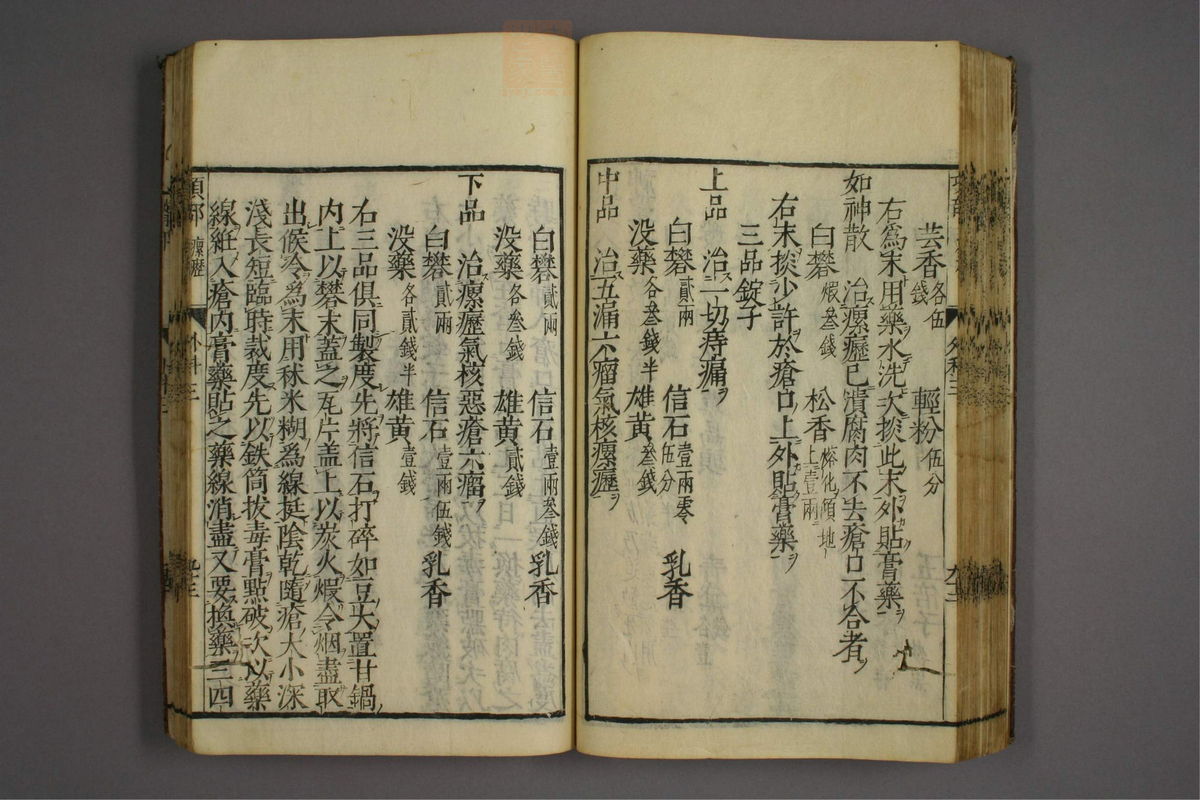 芸香各伍錢　輕粉伍分
右爲末用藥水洗次掞此末外貼膏藥
如神散　治瘰癧已潰腐肉不去瘡口不合者
白礬煅叁錢　松香熔化傾地上壹兩
右末掞少許於瘡口上外貼膏藥
三品錠子
上品　治一切痔漏
白礬貳兩　信石壹兩零伍分　乳香
没藥各叁錢半　雄黃叁錢
中品　治五漏六瘤氣核瘰癧
白礬貳兩　信石壹兩叁錢　乳香
没藥各叁錢　雄黃貳錢
下品　治瘰癧氣核惡瘡六瘤
白礬貳兩　信石壹兩伍錢　乳香
没藥各貳錢半　雄黃壹錢
右三品俱同製度先將信石打碎如豆大置甘鍋
内上以礬末蓋之瓦片盖上以炭火煅令烟盡取
出候冷為末用秫米糊為線挺陰乾隨瘡大小深
淺長短臨時裁度先以鉄筒拔毒膏點破次以藥
線絍入瘡内膏藥貼之藥線消盡又要換藥三四
項部　瘰癧　外科三　九三